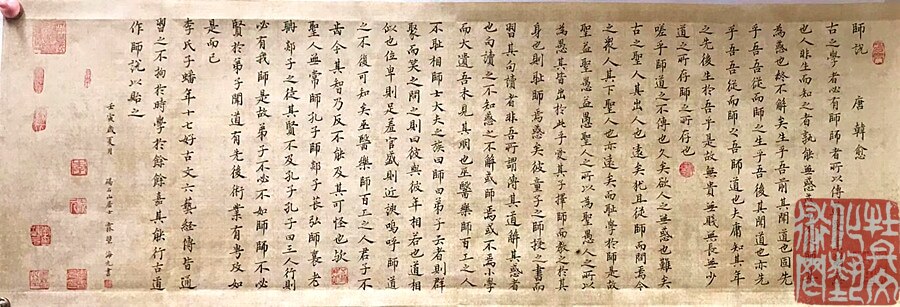 師說 唐 韓愈
古之學者必有師師者所以傳
也人非生而知之者孰能無惑
為惑也終不解矣生乎吾前其聞道也固先
乎吾吾從而師之生乎吾後其聞道也亦先
乎吾吾從而師之吾師道也夫庸知其年
之先後生於吾乎是故無貴無賤無長無少
道之所存師之所存也
嗟乎師道之不傳也久矣欲人之無惑也難矣
古之聖人其出人也遠矣猶且從師而問焉今
之衆人其下聖人也亦遠矣而恥學於師是故
聖益聖愚益愚聖人之所以為聖愚人之所以
為愚其皆出於此乎愛其子擇師而教之於其
身也則恥師焉惑矣彼童子之師授之書而
習其句讀者非吾所謂傳其道解其惑者
也句讀之不知惑之不解或師焉或不焉小學
而大遺吾未見其明也巫醫樂師百工之人
不恥相師士大夫之族曰師曰弟子云者則群
聚而笑之問之則曰彼與彼年相若也道相
似也位卑則足羞官盛則近諛嗚呼師道
之不復可知矣巫醫樂師百工之人君子不
齒今其智乃反不能及其可怪也歟
聖人無常師孔子師郯子萇弘師襄老
聃郯子之徒其賢不及孔子孔子曰三人行則
必有我師是故弟子不必不如師師不必
賢於弟子聞道有先後術業有專攻如
是而已
李氏子蟠年十七好古文六藝經傳皆通
習之不拘於時學於餘餘嘉其能行古道
作師說以貽之
壬寅歲夏月